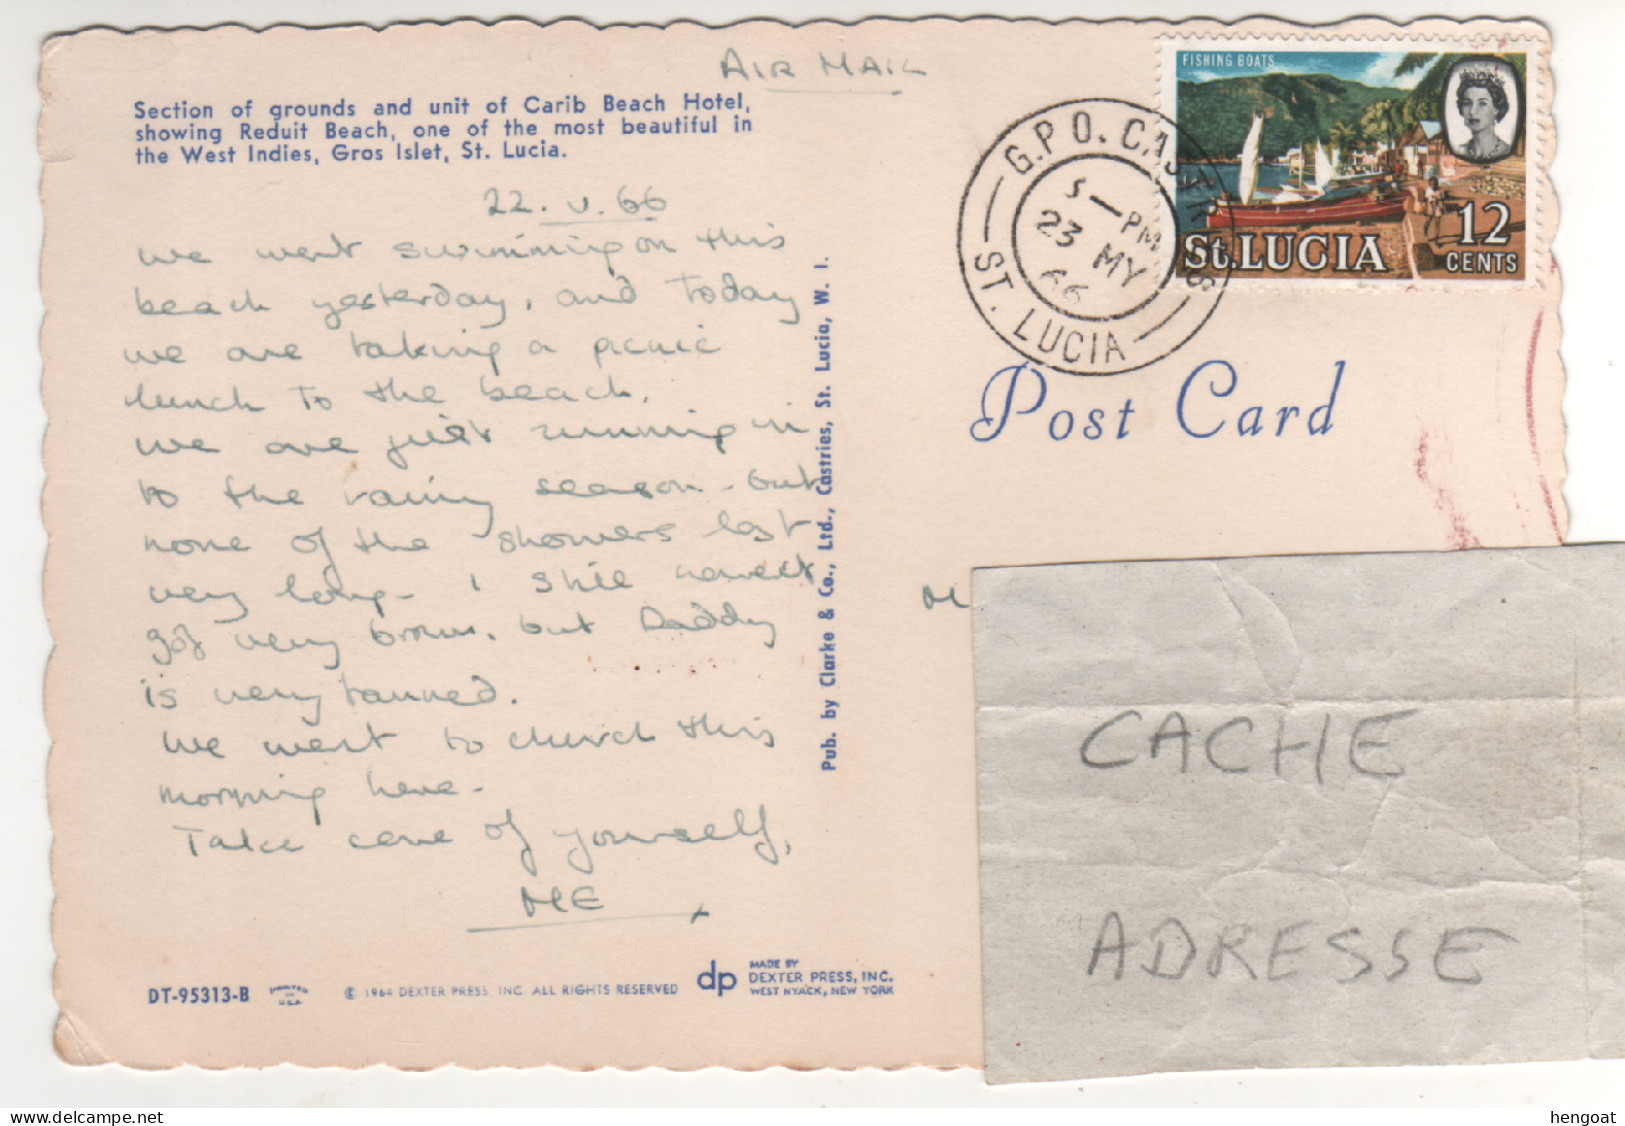 AIR MAIL
Section of grounds and unit of Carib Beach Hotel,
showing Reduit Beach, one of the most beautiful in
the West Indies, Gros Islet, St. Lucia.
22. V. 66
We went swimming on this
beach yesterday, and today
we are taking a picnic
lunch to the beach.
We are just running in
to the rainy season - but
none of the showers last
very long - I still haven't
got very brown, but Daddy
is very tanned.
We went to church this
morning here -
Take care of yourself,
ME
DT-95313-B
PRINTED
IN
U.S.A.
© 1964 DEXTER PRESS, INC. ALL RIGHTS RESERVED
dp
MADE BY
DEXTER PRESS, INC.
WEST NYACK, NEW YORK
Pub. by Clarke & Co., Ltd., Castries, St. Lucia, W. I.
FISHING BOATS
12
CENTS
St. LUCIA
G.P.O. CASTRIES
5 - PM
23 MY
66
ST. LUCIA
Post Card
M
CACHE
ADRESSE
hengoat